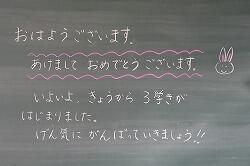 おはようございます。
あけまして おめでとう ございます。
いよいよ、きょうから 3学きが
はじまりました。
げん気に がんばっていきましょう!!